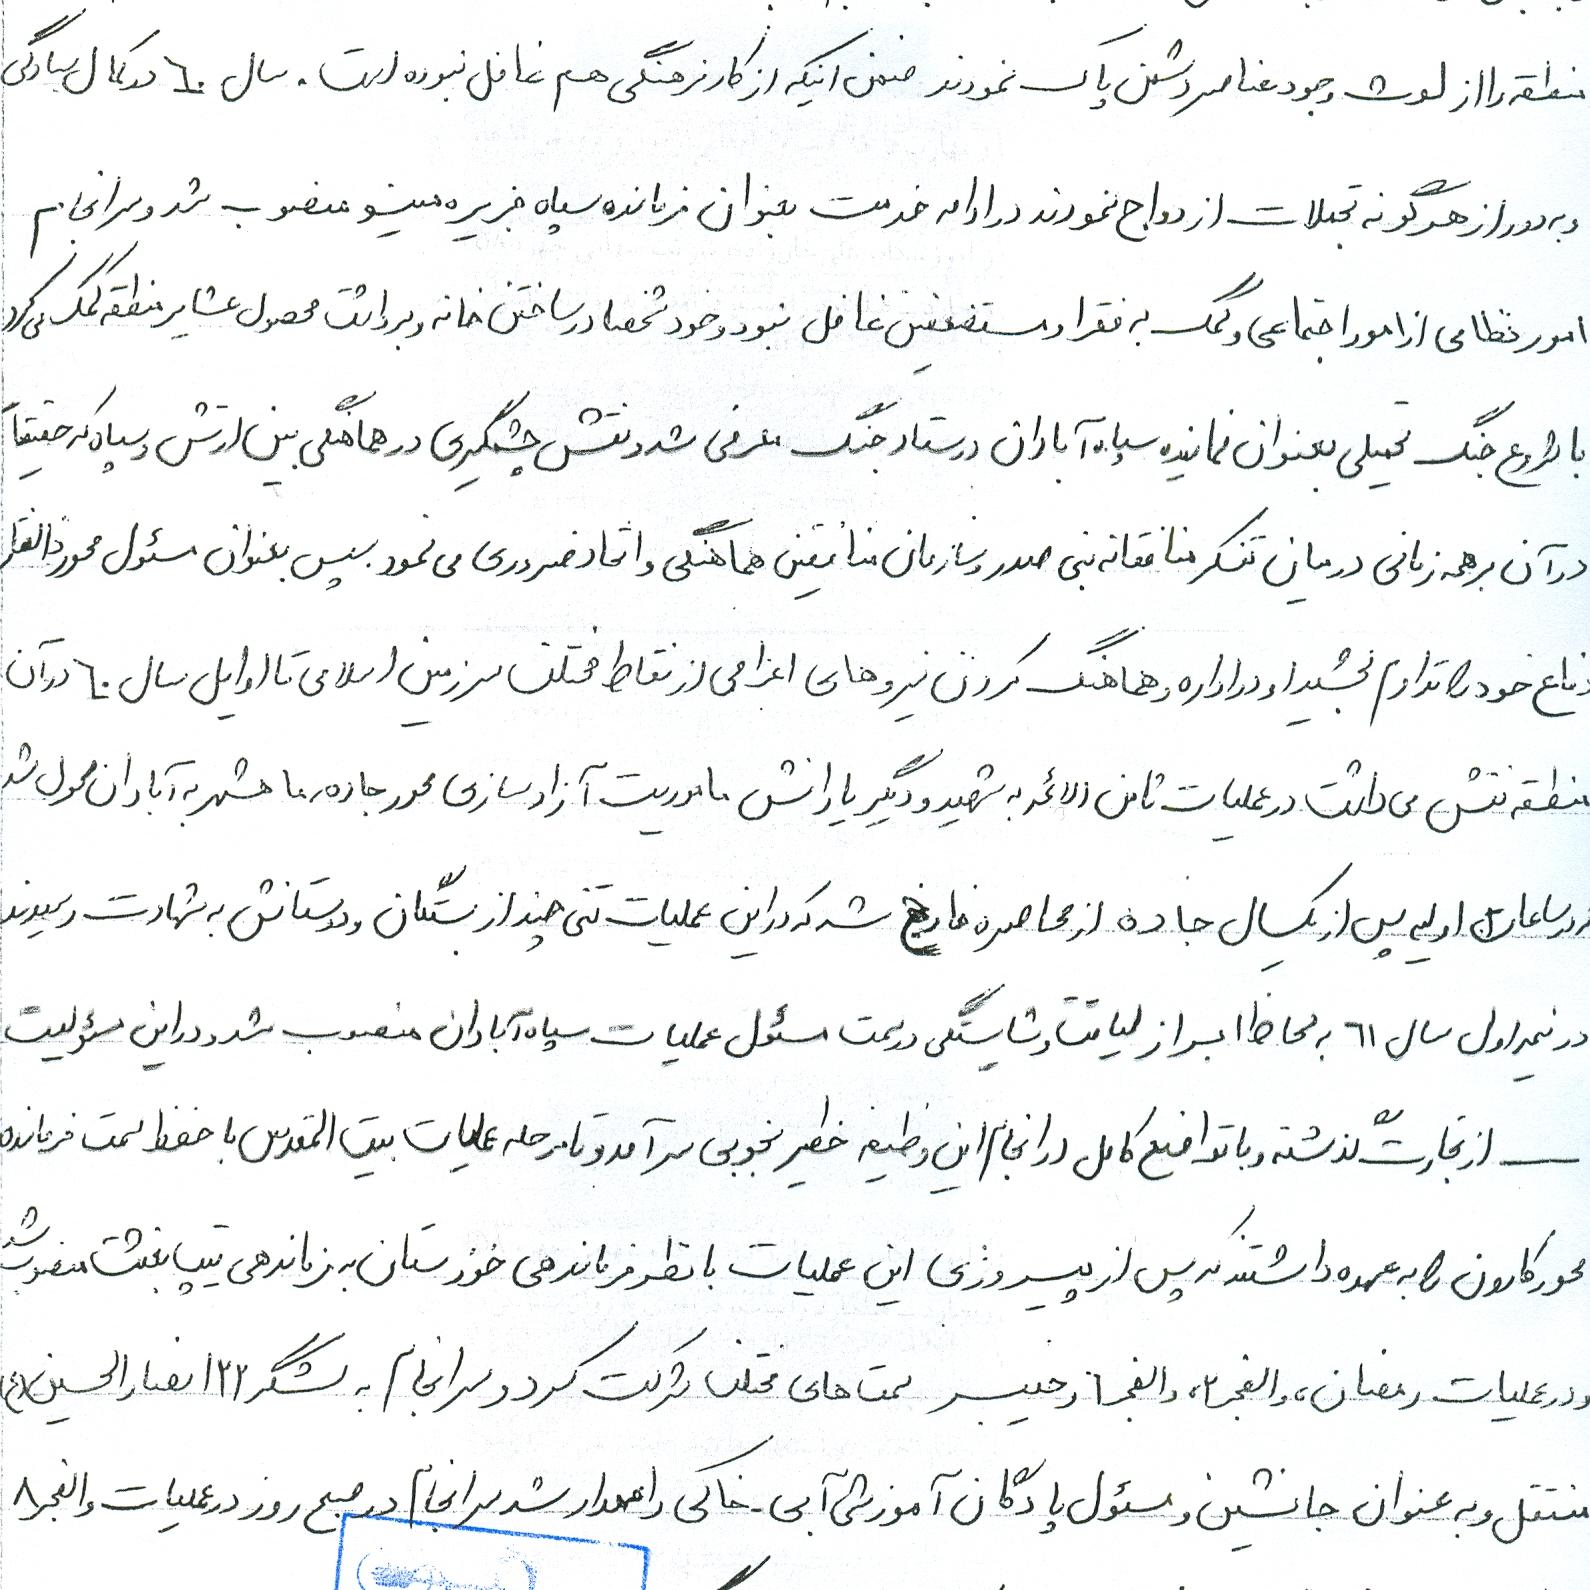 منطقه را از لوث وجود عناصر دشمن پاک نمودند ضمن اینکه از کار فرهنگی هم غافل نبوده است . سال ٦٠ در کمال سادگی
و به دور از هر گونه تجملات ازدواج نمودند در ادامه خدمت بعنوان فرمانده سپاه جزیره مینو منصوب شد و سرانجام
امور نظامی از امور اجتماعی و کمک به فقرا و مستضعفین غافل نبود و خود شخصا در ساختن خانه و برداشت محصول عشایر منطقه کمک می کرد
با شروع جنگ تحمیلی بعنوان نماینده سپاه آبادان در ستاد جنگ معرفی شد و نقش چشمگیری در هماهنگی بین ارتش و سپاه که حقیقاً
در آن برهه زمانی در میان تفکر منافقانه بنی صدر و سازمان منافقین هماهنگی و اتحاد ضروری می نمود . سپس بعنوان مسئول محور ذوالفقار
دفاع خود را تداوم بخشید او در اداره و هماهنگ کردن نیروهای اعزامی از نقاط مختلف سرزمین اسلامی تا اوایل سال ٦٠ در آن
منطقه نقش می داشت در عملیات ثامن الائمه به شهید و دیگر یارانش ماموریت آزاد سازی محور جاده ماهشهر به آبادان محول شد
و در ساعات اولیه پس از یکسال جاده از محاصره خارج شد که در این عملیات تنی چند از بستگان و دوستانش به شهادت رسیدند
در نیمه اول سال ٦١ به لحاظ ابراز لیاقت و شایستگی در سمت مسئول عملیات سپاه آبادان منصوب شد و در این مسؤلیت
ــ از تجارت گذشته و با تواضع کامل در انجام این وظیفه خطیر بخوبی برآمد و تا مرحله عملیات بیت المقدس با حفظ سمت فرمانده
محور کارون را به عهده داشتند که پس از پیروزی این عملیات با نظر فرماندهی خوزستان به فرماندهی تیپ بعثت منصوب شد
و در عملیات رمضان ، والفجر ٢ ، والفجر ٦ و خیبر سمت های مختلف شرکت کرد و سرانجام به لشگر ٣٢ انصار الحسین (ع)
منتقل و به عنوان جانشین و مسئول پادگان آموزشی آبی - خاکی را عهدار شد سرانجام در صبح روز در عملیات والفجر ٨